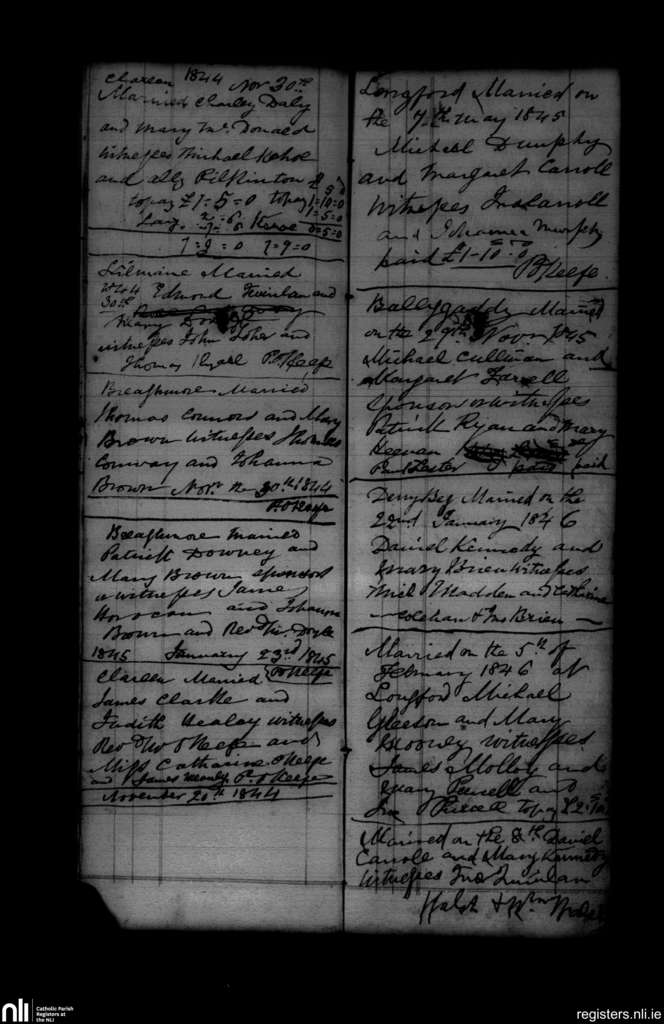 Clareen 1844 Nov 30th
Married Charley Daly
and Mary McDonald
witnesses Michael Kehoe
and Ally Pilkinton £ 5
to pay £1=5=0 to pay 1=10=0
1=5=0
0=5=0
1=9=0 1=9=0
Married
30th Edmond Quinlan and
Mary
witnesses John and
Thomas P. O Keefe
Breaghmore Married
Thomas Connors and Mary
Brown witnesses Thomas
Conway and Johanna
Brown Novr. the 30th 1844
P. O Keefe
Breaghmore Married
Patrick Downey and
Mary Brown sponsors
or witnesses James
and Johanna
Brown and Revd Mr. Doyle
1845 January 23rd 1845
Clareen Married P O Keefe
James Clarke and
Judith Healey witnesses
Revd Mr O Keefe and
Miss Catharine O Keefe
and James P. O Keefe
November 20th 1844
Longford Married on
the 7th May 1845
Michael Dunphy
and Margaret Carroll
witnesses Jno Carroll
and Johanna Murphy
paid £1-10=0
P O Keefe
Ballygaddy Married
on the 29th Novr. 1845
Michael Cullinan and
Margaret Farrell
sponsors or witnesses
Patrick Ryan and Mary
Keevan
paid
Derry Beg Married on the
22nd January 1846
Daniel Kennedy and
Mary O Brien witnesses
Mich Madden and Catharine
& Jno Brien
Married on the 5th of
February 1846 at
Longford Michael
Gleeson and Mary
Mooney witnesses
James Molloy and
Mary Purcell and
Jno Purcell to pay £2
Married on the 8th Daniel
Carroll and Mary Kennedy
witnesses Jno Quinlan
nli
Catholic Parish
Registers at
the NLI
registers.nli.ie